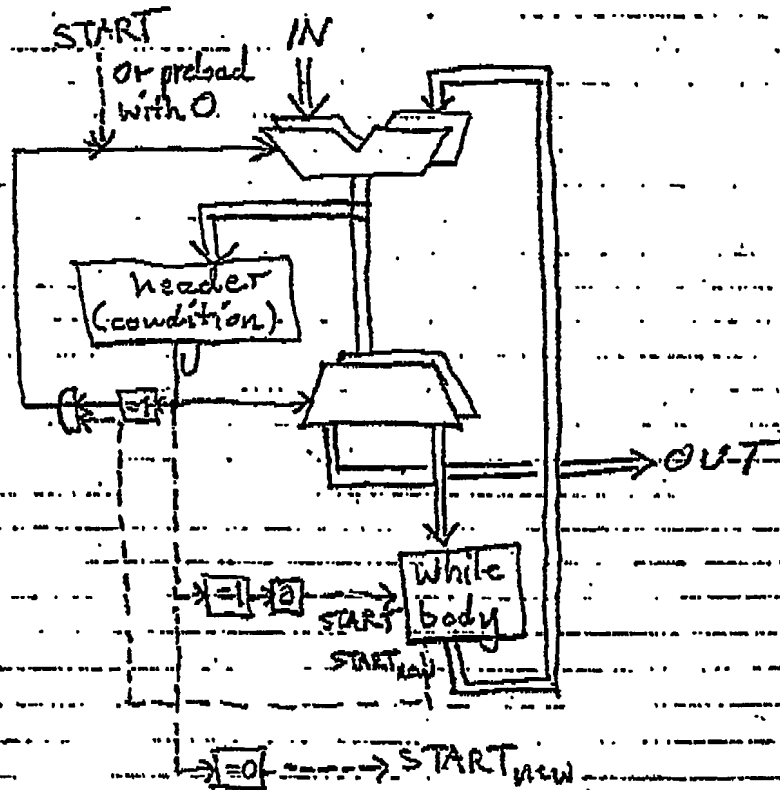 START
IN
or preload
with 0
header
(condition)
=1
OUT
=1
a
START
while
body
START new
=0
START new